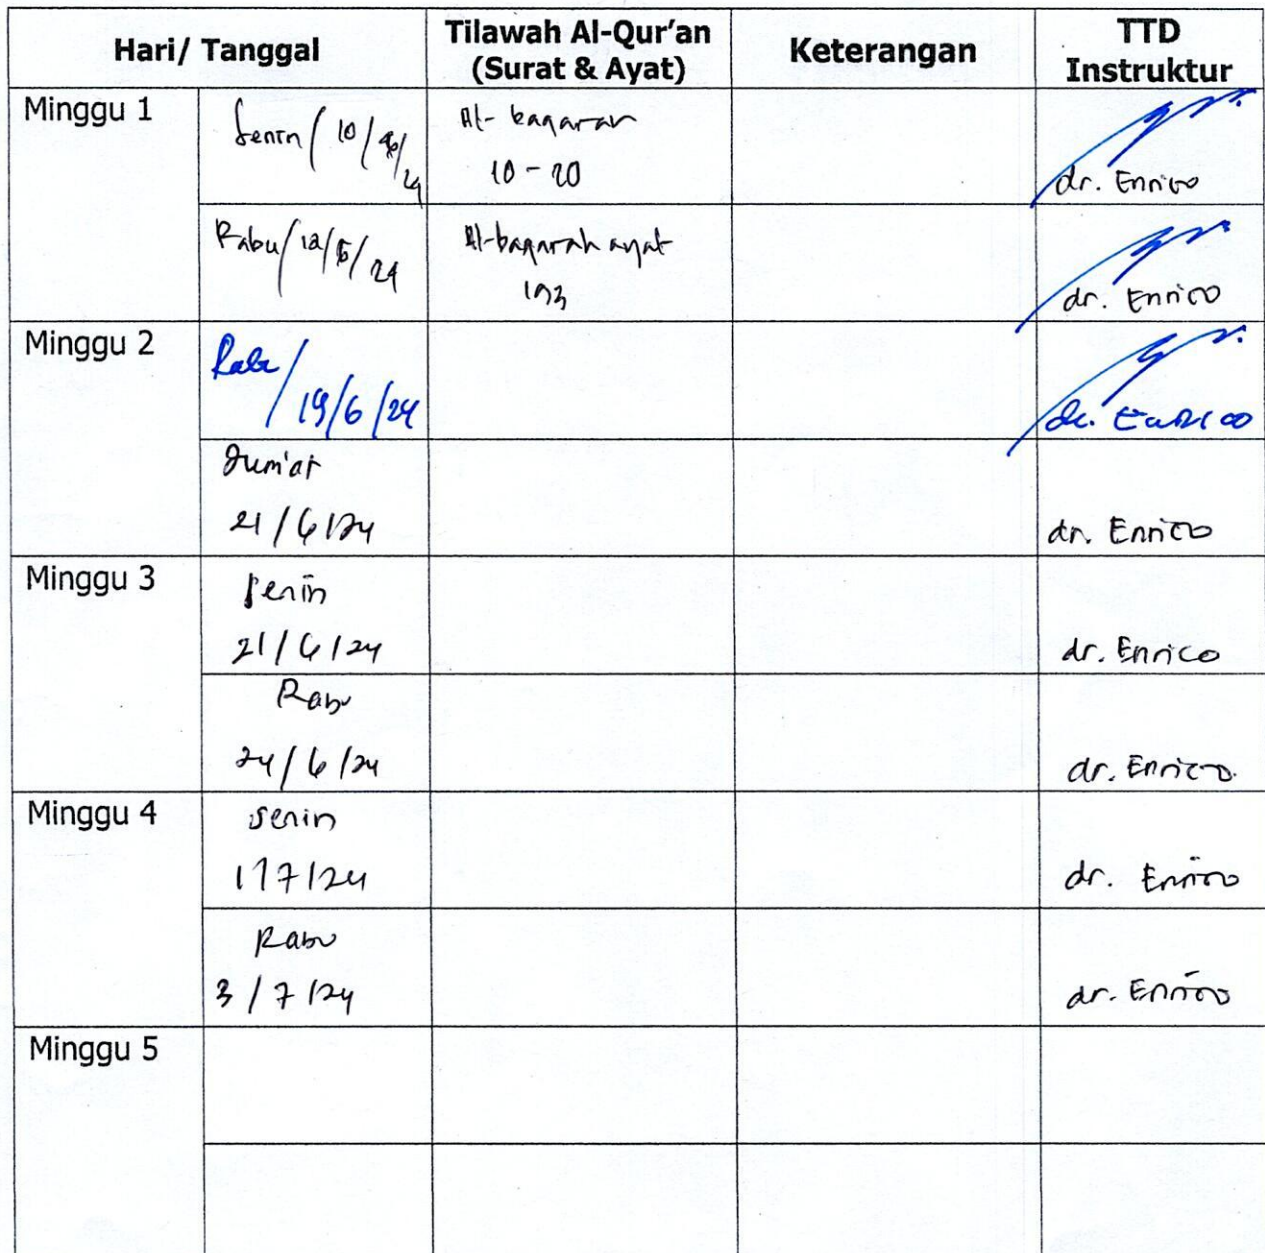 Hari/ Tanggal
Tilawah Al-Qur'an
(Surat & Ayat)
Keterangan
TTD
Instruktur
Minggu 1
Senin / 10/6/24
Al-baqarah
10 - 20
dr. Enrico
Rabu/12/6/24
Al-baqarah ayat
193
dr. Enrico
Minggu 2
Rabu/
19/6/24
dr. Enrico
Jum'at
21/6/24
dr. Enrico
Minggu 3
Senin
21/6/24
dr. Enrico
Rabu
24/6/24
dr. Enrico
Minggu 4
Senin
1/7/24
dr. Enrico
Rabu
3/7/24
dr. Enrico
Minggu 5